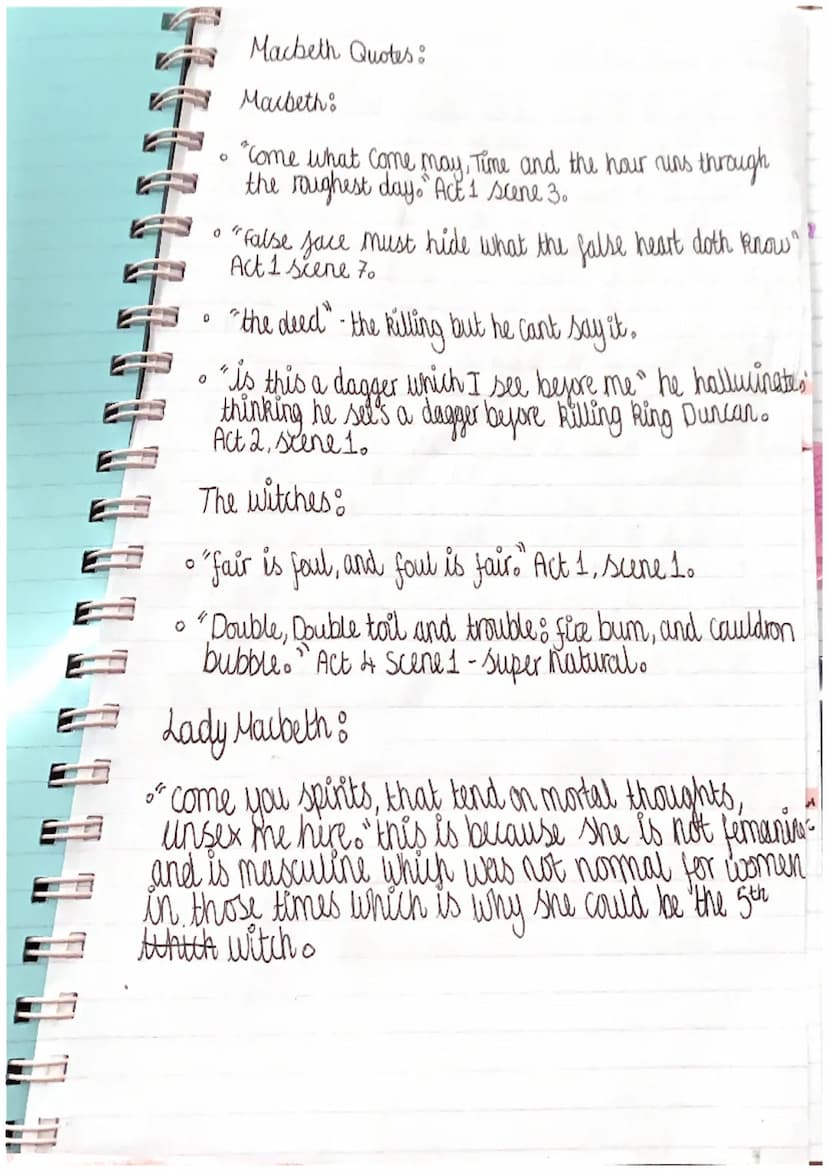 Macbeth Quotes:
Macbeth:
"Come what come may, Time and the hour runs through
the roughest day." Act 1 scene 3.
"False face must hide what the false heart doth know"
Act 1 scene 7.
"the deed" - the killing but he cant say it.
"is this a dagger which I see before me" he hallucinates,
thinking he see's a dagger before killing king Duncan.
Act 2, scene 1.
The witches:
"fair is foul, and foul is fair." Act 1, scene 1.
"Double, Double toil and trouble: fire burn, and cauldron
bubble." Act 4 scene 1 - super natural.
Lady Macbeth:
"come you spirits, that tend on mortal thoughts,
unsex me hire." this is because she is not femanine
and is masculine which was not normal for women
in those times which is why she could be the 5th
witch.